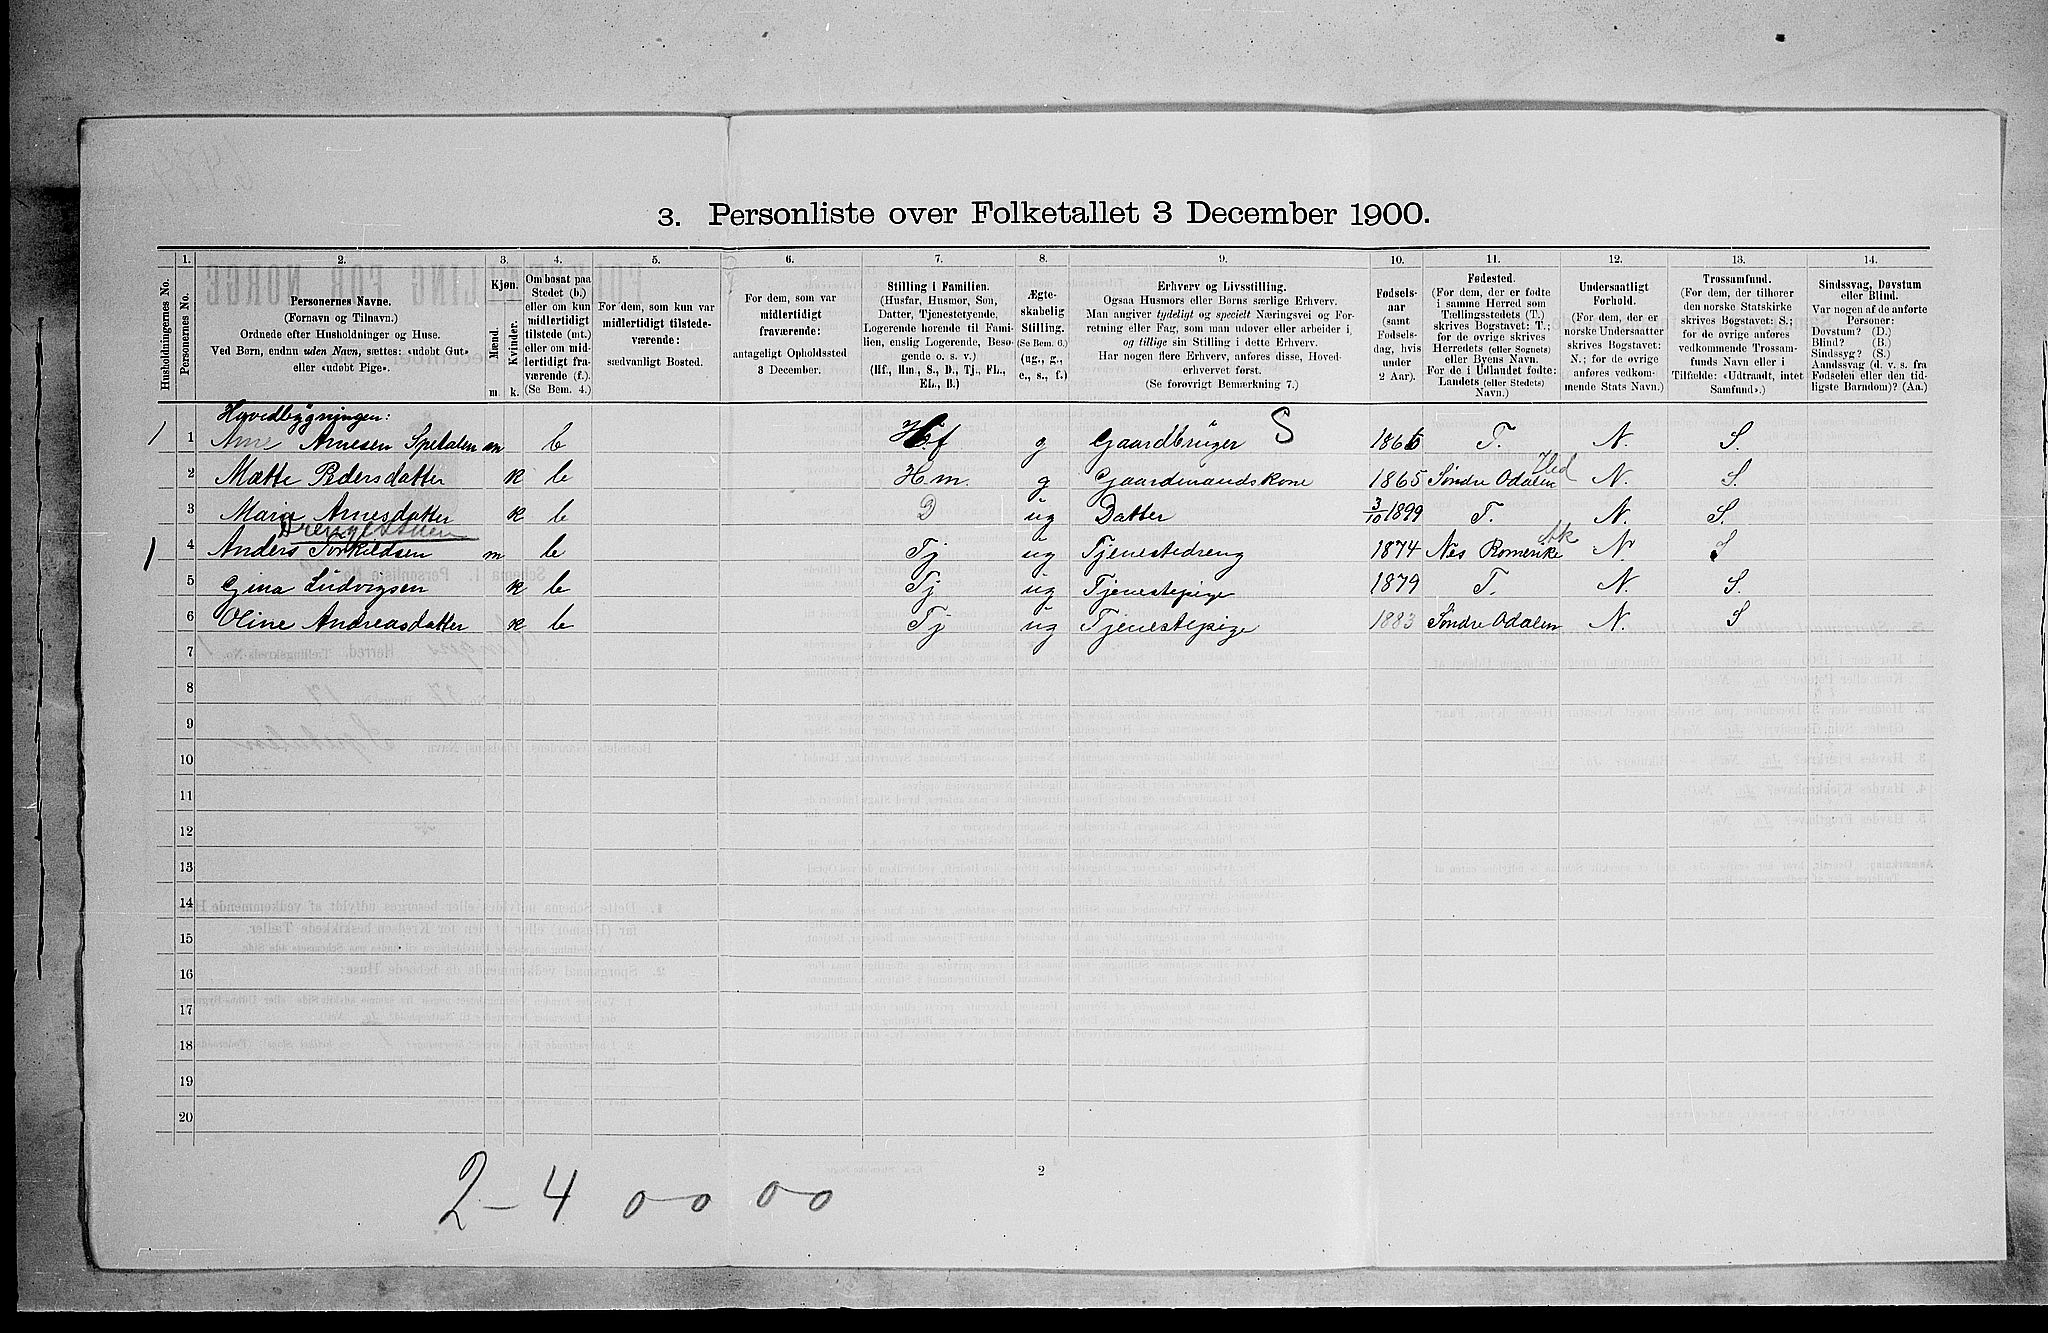 3. Personliste over Folketallet 3 December 1900.
Husholdningernes No.
1.
Personernes No.
2.
Personernes Navne.
(Fornavn og Tilnavn.)
Ordnede efter Husholdninger og Huse.
Ved Børn, endnu uden Navn, sættes: «udøbt Gut»
eller «udøbt Pige».
3.
Kjøn.
Mænd.
Kvinder.
m. k.
4.
Om bosat paa
Stedet (b.)
eller om kun
midlertidigt
tilstede (mt.)
eller om mid-
lertidigt fra-
værende (f.).
(Se Bem. 4.)
5.
For dem, som kun var
midlertidigt tilstede-
værende:
sædvanligt Bosted.
6.
For dem, som var
midlertidigt
fraværende:
antageligt Opholdssted
3 December.
7.
Stilling i Familien.
(Husfar, Husmor, Søn,
Datter, Tjenestetyende,
Logerende hørende til Fami-
lien, enslig Logerende, Besø-
gende o. s. v.)
(Hf., Hm., S., D., Tj., FL.,
EL., B.)
8.
Ægte-
skabelig
Stilling.
(Se Bem. 6.)
(ug., g.,
e., s., f.)
9.
Erhverv og Livsstilling.
Ogsaa Husmors eller Børns særlige Erhverv.
Man angiver tydeligt og specielt Næringsvei og For-
retning eller Fag, som man udøver eller arbeider i,
og tillige sin Stilling i dette Erhverv.
Har nogen flere Erhverv, anføres disse, Hoved-
erhvervet først.
(Se forøvrigt Bemærkning 7.)
10.
Fødsels-
aar
(samt
Fødsels-
dag, hvis
under
2 Aar).
11.
Fødested.
(For dem, der er fødte
i samme Herred som
Tællingsstedets (T.)
skrives Bogstavet: T.;
for de øvrige skrives
Herredets (eller Sognets)
eller Byens Navn.
For de i Udlandet fødte:
Landets (eller Stedets)
Navn.)
12.
Undersaatligt
Forhold.
(For dem, der er
norske Undersaatter
skrives Bogstavet:
N.; for de øvrige
anføres vedkom-
mende Stats Navn.)
13.
Trossamfund.
(For dem, der tilhører
den norske Statskirke
skrives Bogstavet: S.;
for de øvrige anføres
vedkommende Trossam-
funds Navn eller i
Tilfælde: «Udtraadt, intet
Samfund».)
14.
Sindssvag, Døvstum
eller Blind.
Var nogen af de anførte
Personer:
Døvstum? (D.)
Blind? (B.)
Sindssyg? (S.)
Aandssvag (d. v. s. fra
Fødselen eller den tid-
ligste Barndom)? (Aa.)
Hovedbygningen:
1 1 Arne Arnesen Spetalen m b Hf g Gaardbruger S 1866 T. N. S.
2 Mætte Pedersdatter k b Hm. g Gaardmandskone 1865 Søndre Odalen Hed N. S
3 Maria Arnesdatter k b D ug Datter 3/10 1899 T. N. S.
Drengestuen
1 4 Anders Torkildsen m b Tj ug Tjenestedreng 1874 Nes Romerike Ak N S
5 Gina Ludvigsen k b Tj ug Tjenestepige 1879 T. N. S.
6 Oline Andreasdatter k b Tj ug Tjenestepige 1883 Søndre Odalen N. S
7
8
9
10
11
12
13
14
15
16
17
18
19
20
2
2-4 0-0 0-0